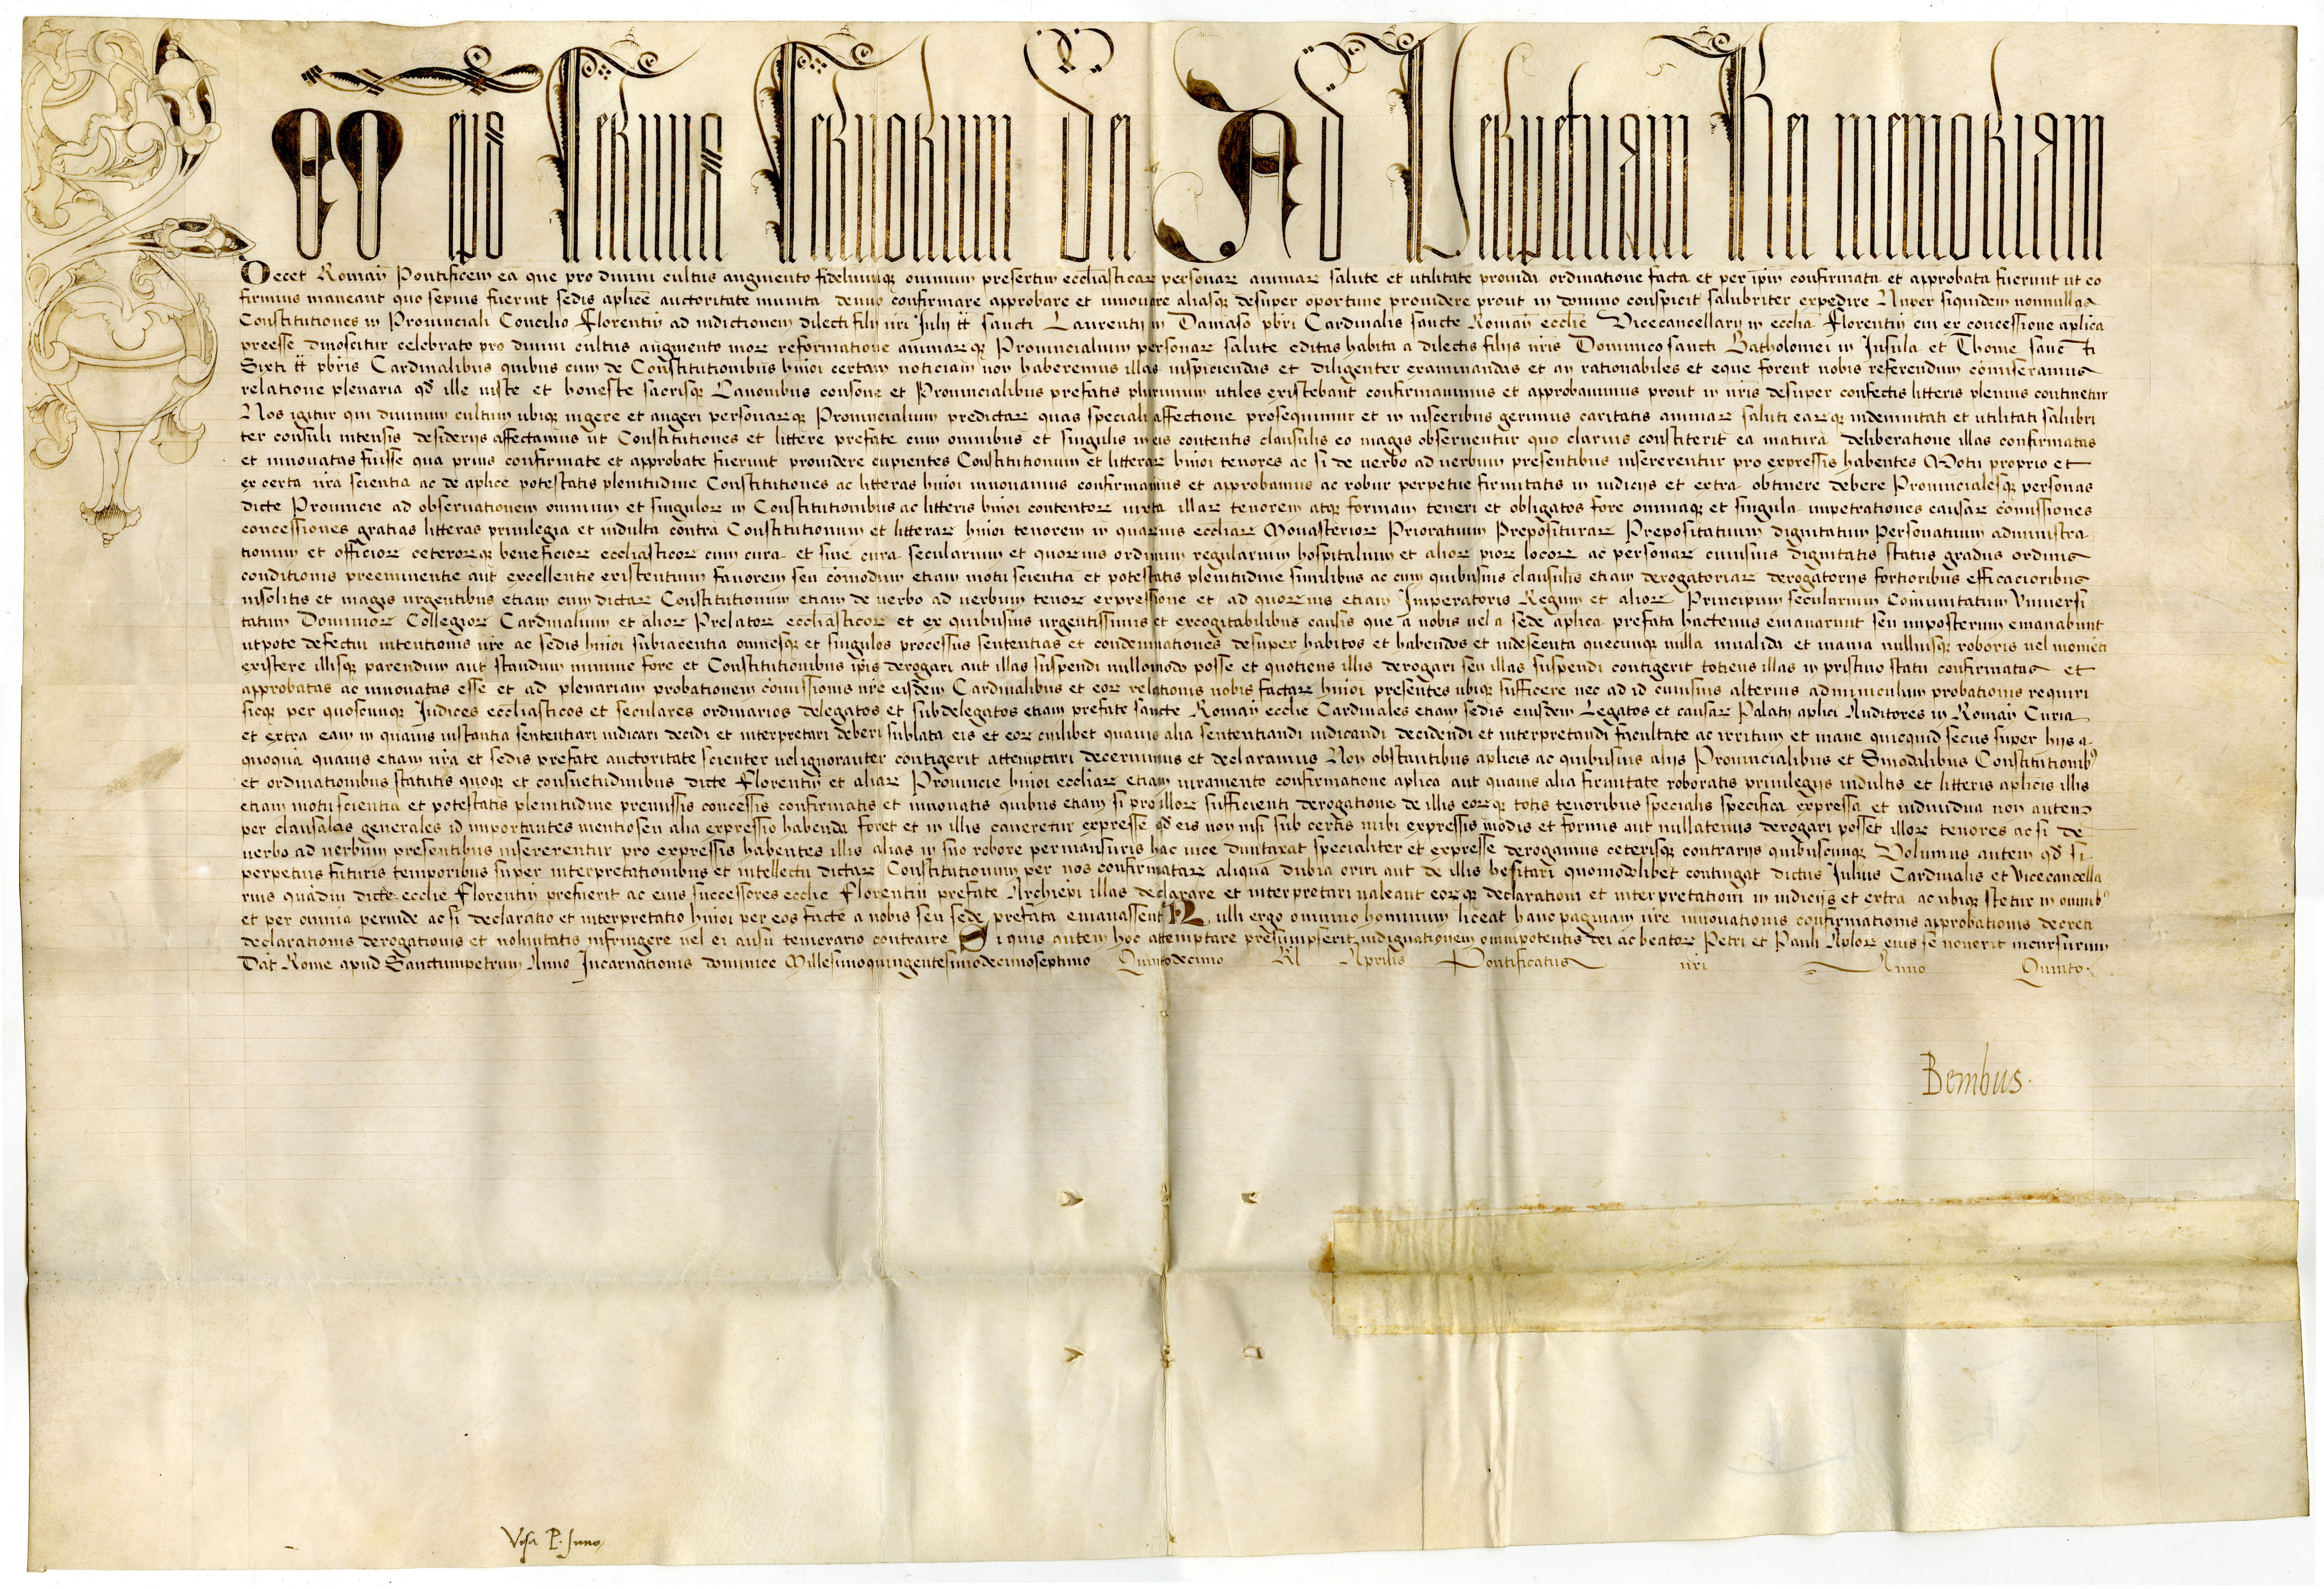 Leo eps Servus Servorum Dei Ad Perpetuam Rei memoriam
Decet Roman Pontificem ea que pro divini cultus augmento fideliumque omnium presertim ecclesiasticar personar animar salute et utilitate provida ordinatione facta et per ipm confirmata et approbata fuerunt ut eo
firmius maneant quo sepius fuerint sedis aplice auctoritate munita denuo confirmare approbare et innovare aliasq desuper oportune providere prout in domino conspicit salubriter expedire Nuper siquidem nonnullas
Constitutiones in Provinciali Concilio Florentin ad indictionem dilecti filii nri Julii tt sancti Laurentii in Damaso pbri Cardinalis sancte Roman ecclie Vicecancellarii in ecclia Florentin cui ex concessione aplica
preesse dinoscitur celebrato pro divini cultus augmento mor reformatione animarq Provincialium personar salute editas habita a dilectis filiis nris Dominico sancti Bartholomei in Insula et Thome sancti
Sixti tt pbris Cardinalibus quibus cum de Constitutionibus hmoi certam noticiam non haberemus illas inspiciendas et diligenter examinandas et an rationabiles et eque forent nobis referendum comiseramus
relatione plenaria qd ille iuste et honeste sacrisq Canonibus consone et Provincialibus prefatis plurimum utiles existebant confirmavimus et approbavimus prout in nris desuper confectis litteris plenius continetur
Nos igitur qui divinum cultum ubiq vigere et augeri personarq Provincialium predictar quas speciali affectione prosequimur et in visceribus gerimus caritatis animar saluti earq indemnitati et utilitati salubri
ter consuli intensis desideriis affectamus ut Constitutiones et littere prefate cum omnibus et singulis in eis contentis clausulis eo magis observentur quo clarius constiterit ea matura deliberatione illas confirmatas
et innovatas fuisse qua prius confirmate et approbate fuerunt providere cupientes Constitutionum et litterar hmoi tenores ac si de verbo ad verbum presentibus insererentur pro expressis habentes Motu proprio et
ex certa nra scientia ac de aplice potestatis plenitudine Constitutiones ac litteras hmoi innovamus confirmamus et approbamus ac robur perpetue firmitatis in iudiciis et extra obtinere debere Provincialesq personas
dicte Provincie ad observationem omnium et singulor in Constitutionibus ac litteris hmoi contentor iuxta illar tenorem atq formam teneri et obligatos fore omniaq et singula impetrationes causar comissiones
concessiones gratias litteras privilegia et indulta contra Constitutionum et litterar hmoi tenorem in quarvis eccliar Monasterior Prioratuum Prepositurar Prepositatuum dignitatum Personatuum administra
tionum et officior ceterorq beneficior ecclesiasticor cum cura et sine cura secularium et quorvis ordinum regularium hospitalium et alior pior locor ac personar cuiusvis dignitatis status gradus ordinis
conditionis preeminentie aut excellentie existentium favorem seu comodum etiam motu scientia et potestatis plenitudine similibus ac cum quibusvis clausulis etiam derogatoriar derogatoriis fortioribus efficacioribus
insolitis et magis urgentibus etiam cum dictar Constitutionum etiam de verbo ad verbum tenor expressione et ad quorvis etiam Imperatoris Regum et alior Principum secularium Comunitatum Universi
tatum Dominior Collegior Cardinalium et alior Prelator ecclesiasticor et ex quibusvis urgentissimis et excogitabilibus causis que a nobis vel a sede aplica prefata hactenus emanarunt seu imposterum emanabunt
utpote defectui intentionis nre ac sedis hmoi subiacentia omnesq et singulos processus sententias et condemnationes desuper habitos et habendos et indesecuta quecunq nulla invalida et inania nulliusq roboris vel momenti
existere illisq parendum aut standum minime fore et Constitutionibus ipis derogari aut illas suspendi nullomodo posse et quotiens illis derogari seu illas suspendi contigerit totiens illas in pristino statu confirmatas et
approbatas ac innovatas esse et ad plenariam probationem comissionis nre eisdem Cardinalibus et eor relationis nobis factar hmoi presentes ubiq sufficere nec ad id cuiusvis alterius adminiculum probationis requiri
sicq per quoscunq Judices ecclesiasticos et seculares ordinarios delegatos et subdelegatos etiam prefate sancte Roman ecclie Cardinales etiam sedis eiusdem Legatos et causar Palatii aplici Auditores in Roman Curia
et extra eam in quavis instantia sententiari iudicari decidi et interpretari deberi sublata eis et eor cuilibet quavis alia sententiandi iudicandi decidendi et interpretandi facultate ac irritum et inane quicquid secus super hiis a
quoquam quavis etiam nra et sedis prefate auctoritate scienter vel ignoranter contigerit attemptari decernimus et declaramus Non obstantibus aplicis ac quibusvis aliis Provincialibus et Sinodalibus Constitutionib
et ordinationibus statutis quoq et consuetudinibus dicte Florentin et aliar Provincie hmoi eccliar etiam iuramento confirmatione aplica aut quavis alia firmitate roboratis privilegiis indultis et litteris aplicis illis
etiam motu scientia et potestatis plenitudine premissis concessis confirmatis et innovatis quibus etiam si pro illor sufficienti derogatione de illis eorq totis tenoribus specialis specifica expressa et individua non autem
per clausulas generales id importantes mentio seu alia expressio habenda foret et in illis caveretur expresse qd eis non nisi sub certis inibi expressis modis et formis aut nullatenus derogari posset illor tenores ac si de
verbo ad verbum presentibus insererentur pro expressis habentes illis alias in suo robore permansuris hac vice duntaxat specialiter et expresse derogamus ceterisq contrariis quibuscunq Volumus autem qd si
perpetuis futuris temporibus super interpretationibus et intellectu dictar Constitutionum per nos confirmatar aliqua dubia oriri aut de illis hesitari quomodolibet contingat dictus Julius Cardinalis et Vicecancella
rius quamdiu dicte ecclie Florentin prefuerit ac eius successores ecclie Florentin prefate Archiepi illas declarare et interpretari valeant eorq declarationi et interpretationi in iudiciis et extra ac ubiq stetur in omnib
et per omnia perinde ac si declaratio et interpretatio hmoi per eos facte a nobis seu sede prefata emanassent Nulli ergo omnino hominum liceat hanc paginam nre innovationis confirmationis approbationis decreti
declarationis derogationis et voluntatis infringere vel ei ausu temerario contraire Si quis autem hoc attemptare presumpserit indignationem omnipotentis dei ac beator Petri et Pauli Aplor eius se noverit incursurum
Dat Rome apud Sanctumpetrum Anno Incarnationis dominice Millesimoquingentesimodecimoseptimo Quintodecimo Kl Aprilis Pontificatus nri Anno Quinto
Bembus.
Visa P.